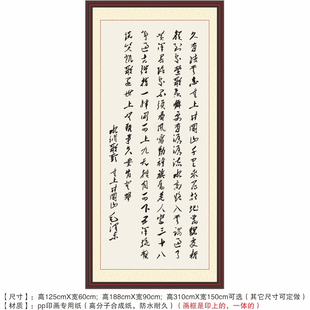 久有凌云志重上井冈山千里来寻故地旧貌变新
颜到处莺歌燕舞更有潺潺流水高路入云端过了
黄洋界险处不须看风雷动旌旗奋是人寰三十八
年过去弹指一挥间可上九天揽月可下五洋捉鳖
谈笑凯歌还世上无难事只要肯登攀
水调歌头 重上井冈山 毛泽东
【尺寸】：高125cmX宽60cm; 高188cmX宽90cm; 高310cmX宽150cm可选（其它尺寸可定做）
【材质】：pp印画专用纸（高分子合成纸，防水耐久）（画框是印上的，一体的）